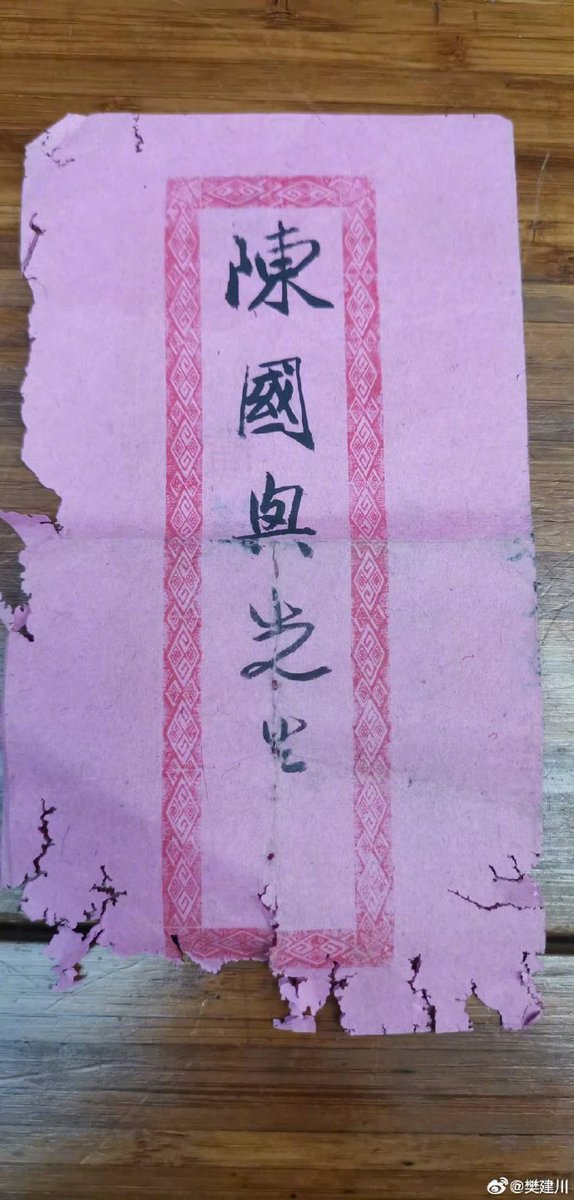 陳國興先生
@樊建川